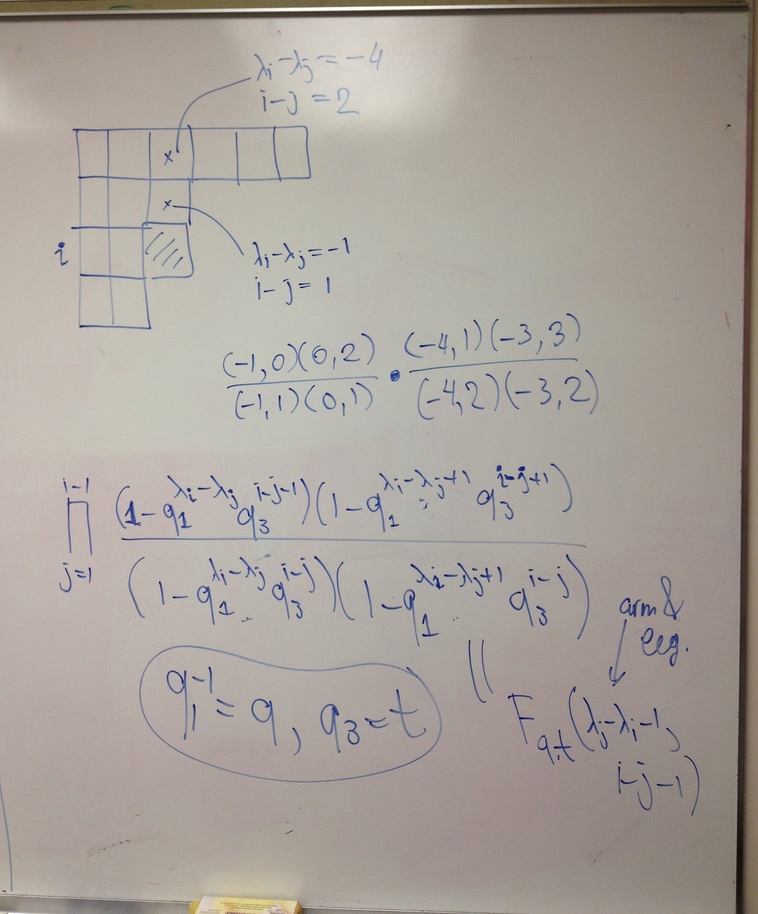 λi-λj = -4
i-j = 2
x
x
i
λi-λj = -1
i-j = 1
(-1,0)(0,2) / (-1,1)(0,1) • (-4,1)(-3,3) / (-4,2)(-3,2)
∏_{j=1}^{i-1} (1-q_1^{λi-λj} q_3^{i-j-1})(1-q_1^{λi-λj+1} q_3^{i-j+1}) / (1-q_1^{λi-λj} q_3^{i-j})(1-q_1^{λi-λj+1} q_3^{i-j})
arm &
leg.
q_1^{-1} = q, q_3 = t
||
F_{q,t}(λj-λi-1,
i-j-1)